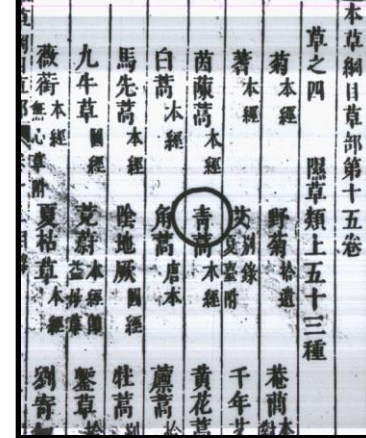 本草綱目草部第十五卷
草之四　隰草類上五十三種
菊本經　野菊拾遺　菴䕡本
蓍本經　艾別錄夏臺附　千年艾
茵蔯蒿本經　青蒿本經　黃花蒿
白蒿本經　角蒿唐本　蘪蒿拾
馬先蒿本經　陰地厥圖經　牡蒿別
九牛草圖經　茺蔚本經　鏨草拾
薇蘅本經無心草附　夏枯草本經　劉寄